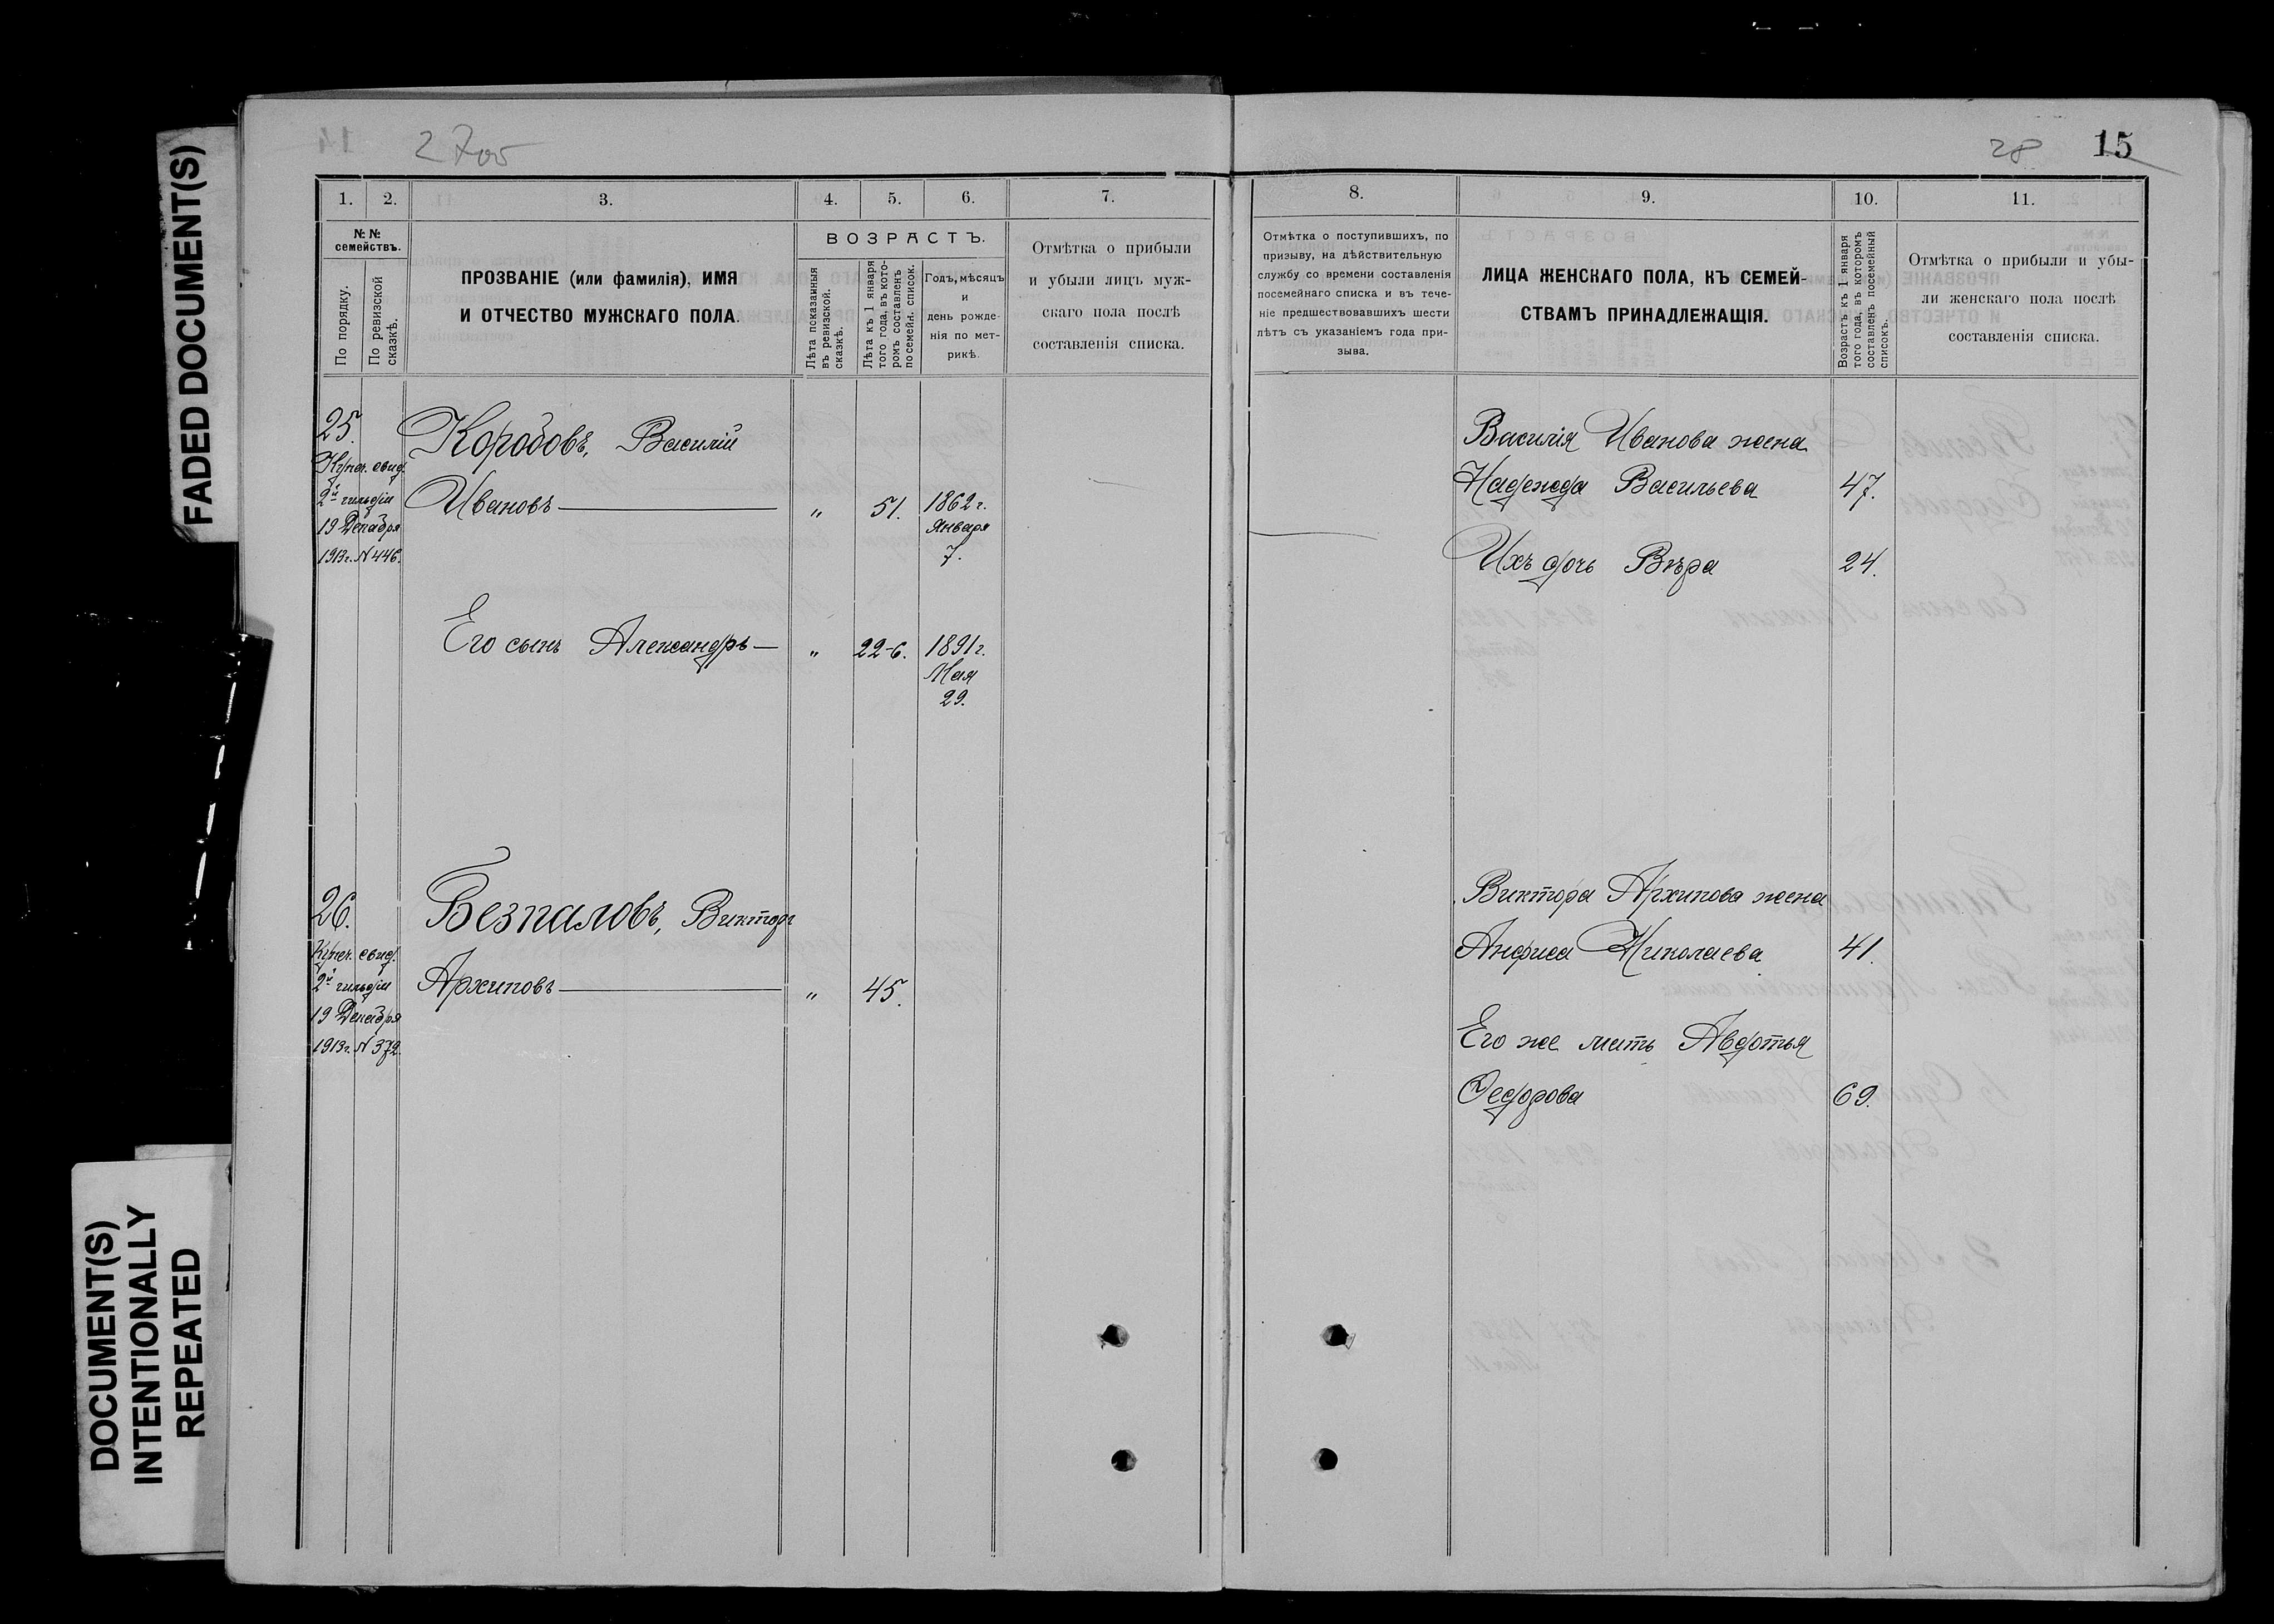 FADED DOCUMENT(S)
DOCUMENT(S)
INTENTIONALLY
REPEATED
1. 2. 3. 4. 5. 6. 7.
№ №
семействъ.
По порядку.
По ревизской
сказкѣ.
ПРОЗВАНІЕ (или фамилія), ИМЯ
И ОТЧЕСТВО МУЖСКАГО ПОЛА.
ВОЗРАСТЪ.
Лѣта показанныя
въ ревизской.
сказкѣ.
Лѣта къ 1 января
того года, въ кото-
ромъ составленъ
посемейн. список.
Годъ, мѣсяцъ
и
день рожде-
нія по мет-
рикѣ.
Отмѣтка о прибыли
и убыли лицъ муж-
скаго пола послѣ
составленія списка.
25.
Купеч. свид.
2й гильдіи
19 Декабря
1913 г. N 446.
Коробовъ, Василій
Ивановъ „ 51. 1862 г.
Января
7.
Его сынъ Александръ „ 22-6. 1891 г.
Мая
29.
26.
Купеч. свид.
2й гильдіи
19 Декабря
1913 г. N 372.
Безпаловъ, Викторъ
Архиповъ „ 45.
28 15
8. 9. 10. 11.
Отмѣтка о поступившихъ, по
призыву, на дѣйствительную
службу со времени составленія
посемейнаго списка и въ тече-
ніе предшествовавшихъ шести
лѣтъ съ указаніемъ года при-
зыва.
ЛИЦА ЖЕНСКАГО ПОЛА, КЪ СЕМЕЙ-
СТВАМЪ ПРИНАДЛЕЖАЩІЯ.
Возрастъ къ 1 января
того года, въ которомъ
составленъ посемейный
списокъ.
Отмѣтка о прибыли и убы-
ли женскаго пола послѣ
составленія списка.
Василія Иванова жена
Надежда Васильева 47.
Ихъ дочь Вѣра 24.
Виктора Архипова жена
Анфиса Николаева 41.
Его же мать Авдотья
Ѳедорова 69.